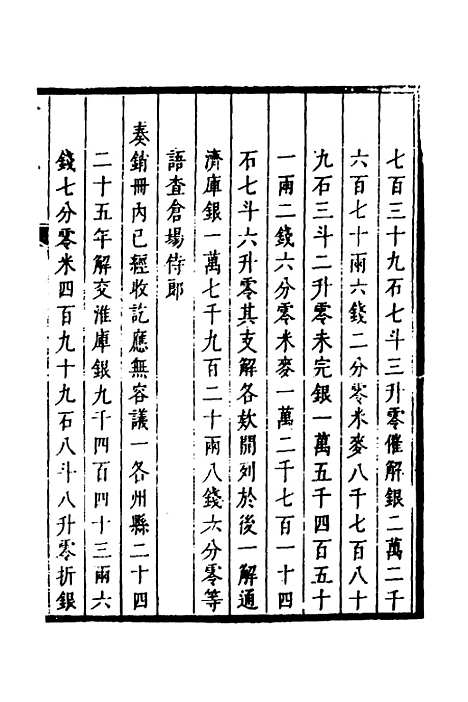 七百三十九石七斗三升零催解銀二萬二千
六百七十兩六錢二分零米麥八千七百八十
九石三斗二升零未完銀一萬五千四百五十
一兩二錢六分零米麥一萬二千七百一十四
石七斗六升零其支解各欵開列於後一解通
濟庫銀一萬七千九百二十兩八錢六分零等
語查倉場侍郎
奏銷冊內已經收訖應無容議一各州縣二十四
二十五年解交淮庫銀九千四百四十三兩六
錢七分零米四百九十九石八斗八升零折銀